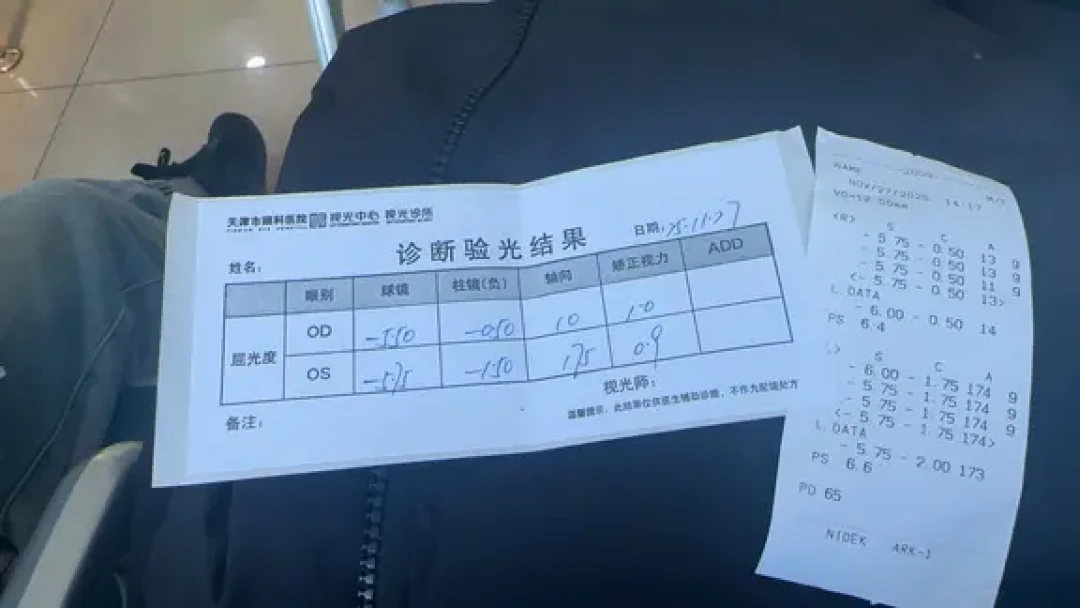 天津市眼科医院 视光中心 视光诊所
诊断验光结果
日期: 25.11.27
姓名:
眼别 球镜 柱镜(负) 轴向 矫正视力 ADD
屈光度
OD -5.50 -0.50 10 1.0
OS -5.75 -1.50 175 0.9
视光师:
备注:
温馨提示: 此结果仅供医生辅助诊断, 不作为配镜处方
NAME
NOV/27/2025 14:17
VD=12.00mm
<R> S C A
- 5.75 - 0.50 13 9
- 5.75 - 0.50 13 9
- 5.75 - 0.50 11 9
<- 5.75 - 0.50 13>
L.DATA
- 6.00 - 0.50 14
PS 6.4
S C A
- 6.00 - 1.75 174 9
- 5.75 - 1.75 174 9
- 5.75 - 1.75 174 9
<- 5.75 - 1.75 174>
L.DATA
- 5.75 - 2.00 173
PS 6.6
PD 65
NIDEK ARK-1